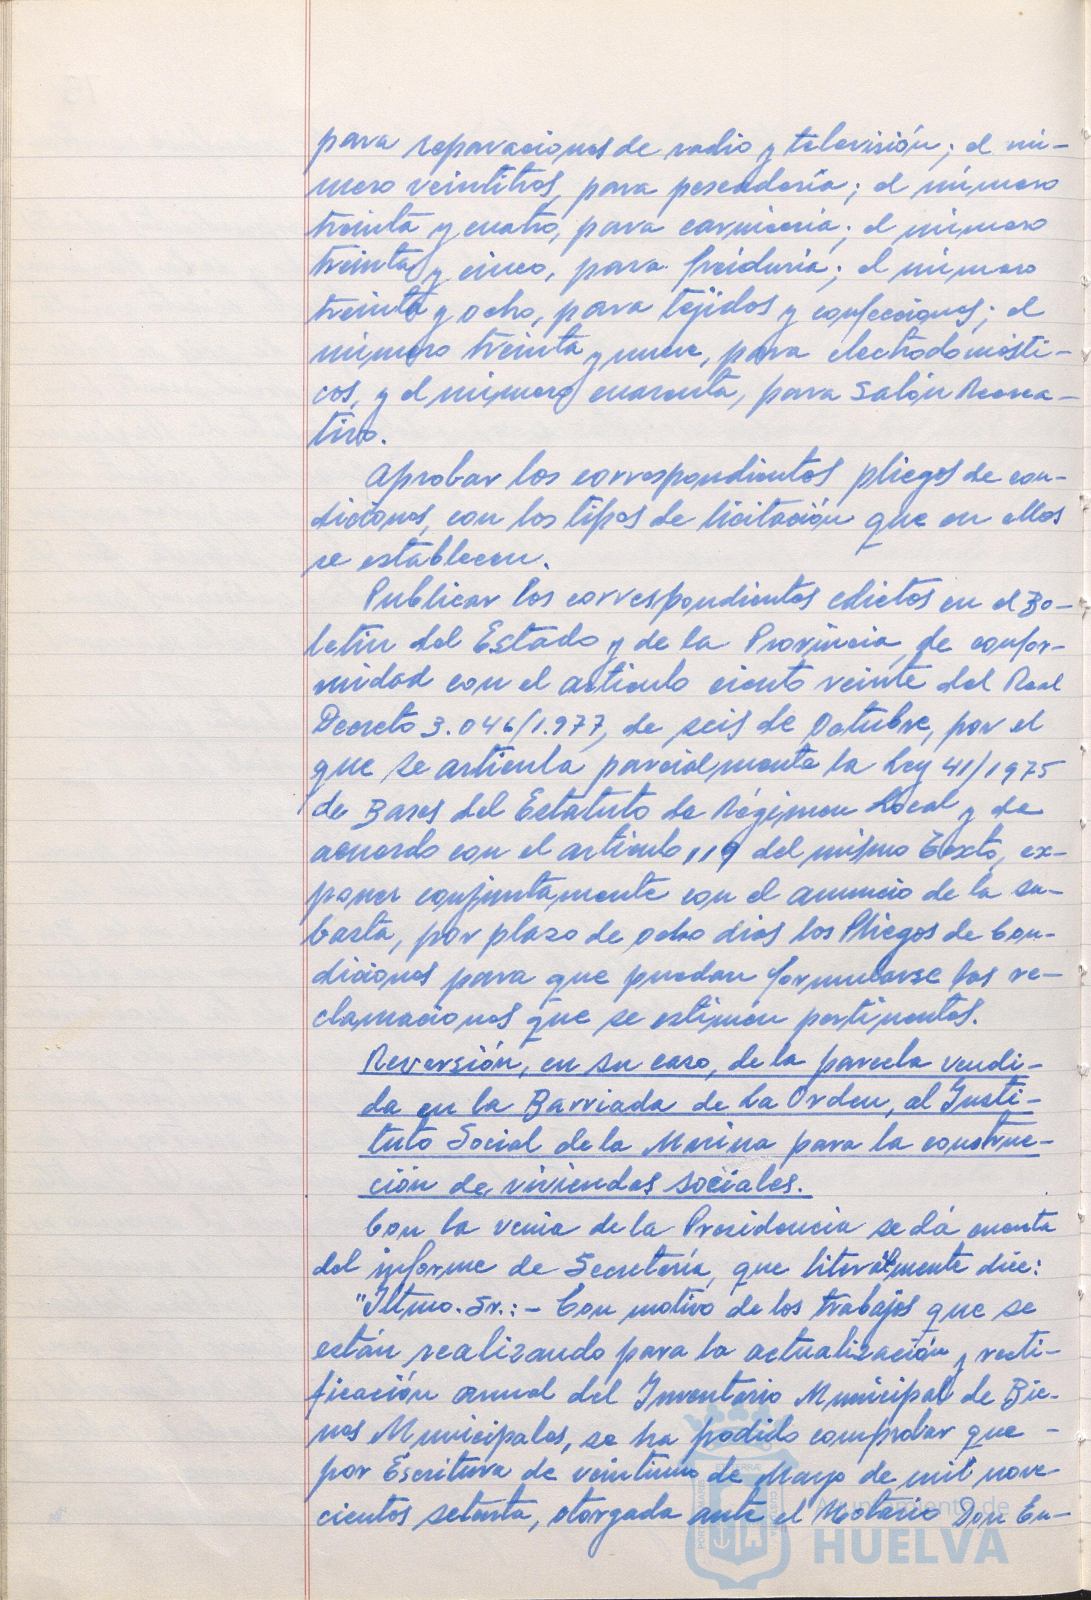 para reparaciones de radio y televisión; el nú-
mero veintitres, para pescadería; el número
treinta y cuatro, para carnicería; el número
treinta y cinco, para freiduria; el número
treinta y ocho, para tejidos y confecciones; el
número treinta y nueve, para electrodomésti-
cos, y el número cuarenta, para Salón Recrea-
tivo.
Aprobar los correspondientes pliegos de con-
diciones, con los tipos de licitación que en ellos
se establecen.
Publicar los correspondientes edictos en el Bo-
letin del Estado y de la Provincia, de confor-
midad con el artículo ciento veinte del Real
Decreto 3.046/1.977, de seis de Octubre, por el
que se articula parcialmente la Ley 41/1975
de Bases del Estatuto de Régimen Local y de
acuerdo con el artículo 119 del mismo Texto, ex-
poner conjuntamente con el anuncio de la su-
basta, por plazo de ocho dias los Pliegos de Con-
diciones para que puedan formularse las re-
clamaciones que se estimen pertinentes.
Reversión, en su caso, de la parcela vendi-
da en la Barriada de La Orden, al Insti-
tuto Social de la Marina para la construc-
ción de viviendas sociales.
Con la venia de la Presidencia se dá cuenta
del informe de Secretería, que literalmente dice:
"Iltmo. Sr.: - Con motivo de los trabajos que se
están realizando para la actualización y recti-
ficación anual del Inventario Municipal de Bie-
nes Municipales, se ha podido comprobar que -
por Escritura de veintiuno de Mayo de mil nove-
cientos setenta, otorgada ante el Notario Don En-
Ayuntamiento de
HUELVA